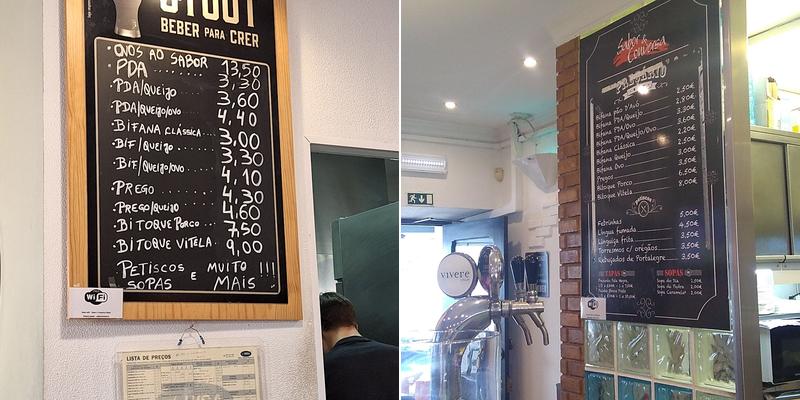 STOUT
BEBER PARA CRER
OVOS AO SABOR 13,50
PDA 3,30
PDA/QUEIJO 3,60
PDA/QUEIJO/OVO 4,40
BIFANA CLÁSSICA 3,00
BIF/QUEIJO 3,30
BIF/QUEIJO/OVO 4,10
PREGO 4,30
PREGO/QUEIJO 4,60
BITOQUE PORCO 7,50
BITOQUE VITELA 9,00
PETISCOS E MUITO !!!
SOPAS MAIS
WiFi
LISTA DE PREÇOS
Sabor &
Conversa
Bifana pão D'Avó 2,50€
Bifana PDA/Queijo 2,80€
Bifana PDA/Ovo 3,30€
Bifana PDA/Queijo/Ovo 3,60€
Bifana Clássica 2,20€
Bifana Queijo 2,50€
Bifana Ovo 3,00€
Pregos 3,50€
Bitoque Porco 6,50€
Bitoque Vitela 8,00€
Petiscos
Língua fumada 5,00€
Linguiça frita 4,50€
Torresmos c/ orégãos 3,50€
Rebuçados de Portalegre 3,50€
TAPAS
SOPAS
Sopa do Dia
WiFi
vivere